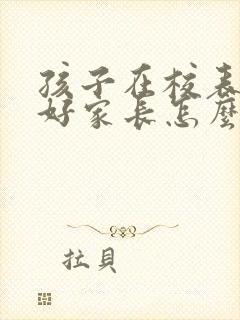 孩子在校表
好家長怎麼
拉貝